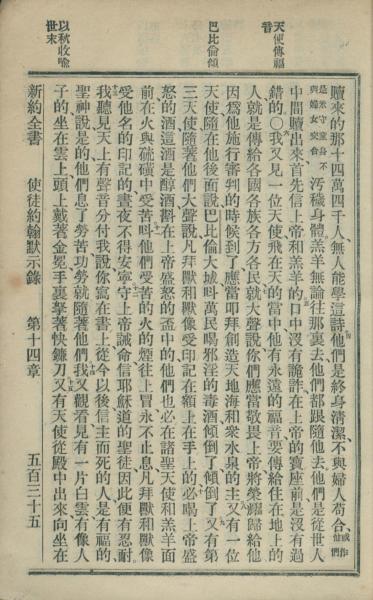 天使傳福音
巴比倫傾
以秋收喻世末
贖來的那十四萬四千人無人能學這詩他們是終身清潔不與婦人苟合或作他們
是終守童身不與婦女交合
汚穢身體羔羊無論往那裏去他們都跟隨他去他們是從世人
中間贖出來首先信上帝和羔羊的口中沒有詭詐在上帝的寶座前是沒有過
錯的○我又見一位天使飛在天的當中他有永遠的福音要傳給住在地上的
人就是傳給各國各族各方各民就大聲說你們應當敬畏上帝將榮耀歸給他
因爲他施行審判的時候到了應當叩拜創造天地海和衆水泉的主又有一位
天使隨在他後面說巴比倫大城呌萬民喝邪淫的毒酒傾倒了傾倒了又有第
三天使隨著他們大聲說凡拜獸和獸像受印記在額上在手上的必喝上帝盛
怒的酒這酒是醇酒斟在上帝盛怒的盃中的他們也必在諸聖天使和羔羊面
前在火與硫磺中受苦呌他們受苦的火的煙往上冒永不止息凡拜獸和獸像
受他名的印記的晝夜不得安寧守上帝誡命信耶穌道的聖徒因此便有忍耐
我聽見天上有聲音分付我說你寫在書上從今以後信主而死的人是有福的
聖神說是的他們息了勞苦功勞就隨著他們我又觀看見有一片白雲有像人
子的坐在雲上頭上戴著金冕手裏拏著快鐮刀又有天使從殿中出來向坐在
新約全書 使徒約翰默示錄 第十四章 五百三十五